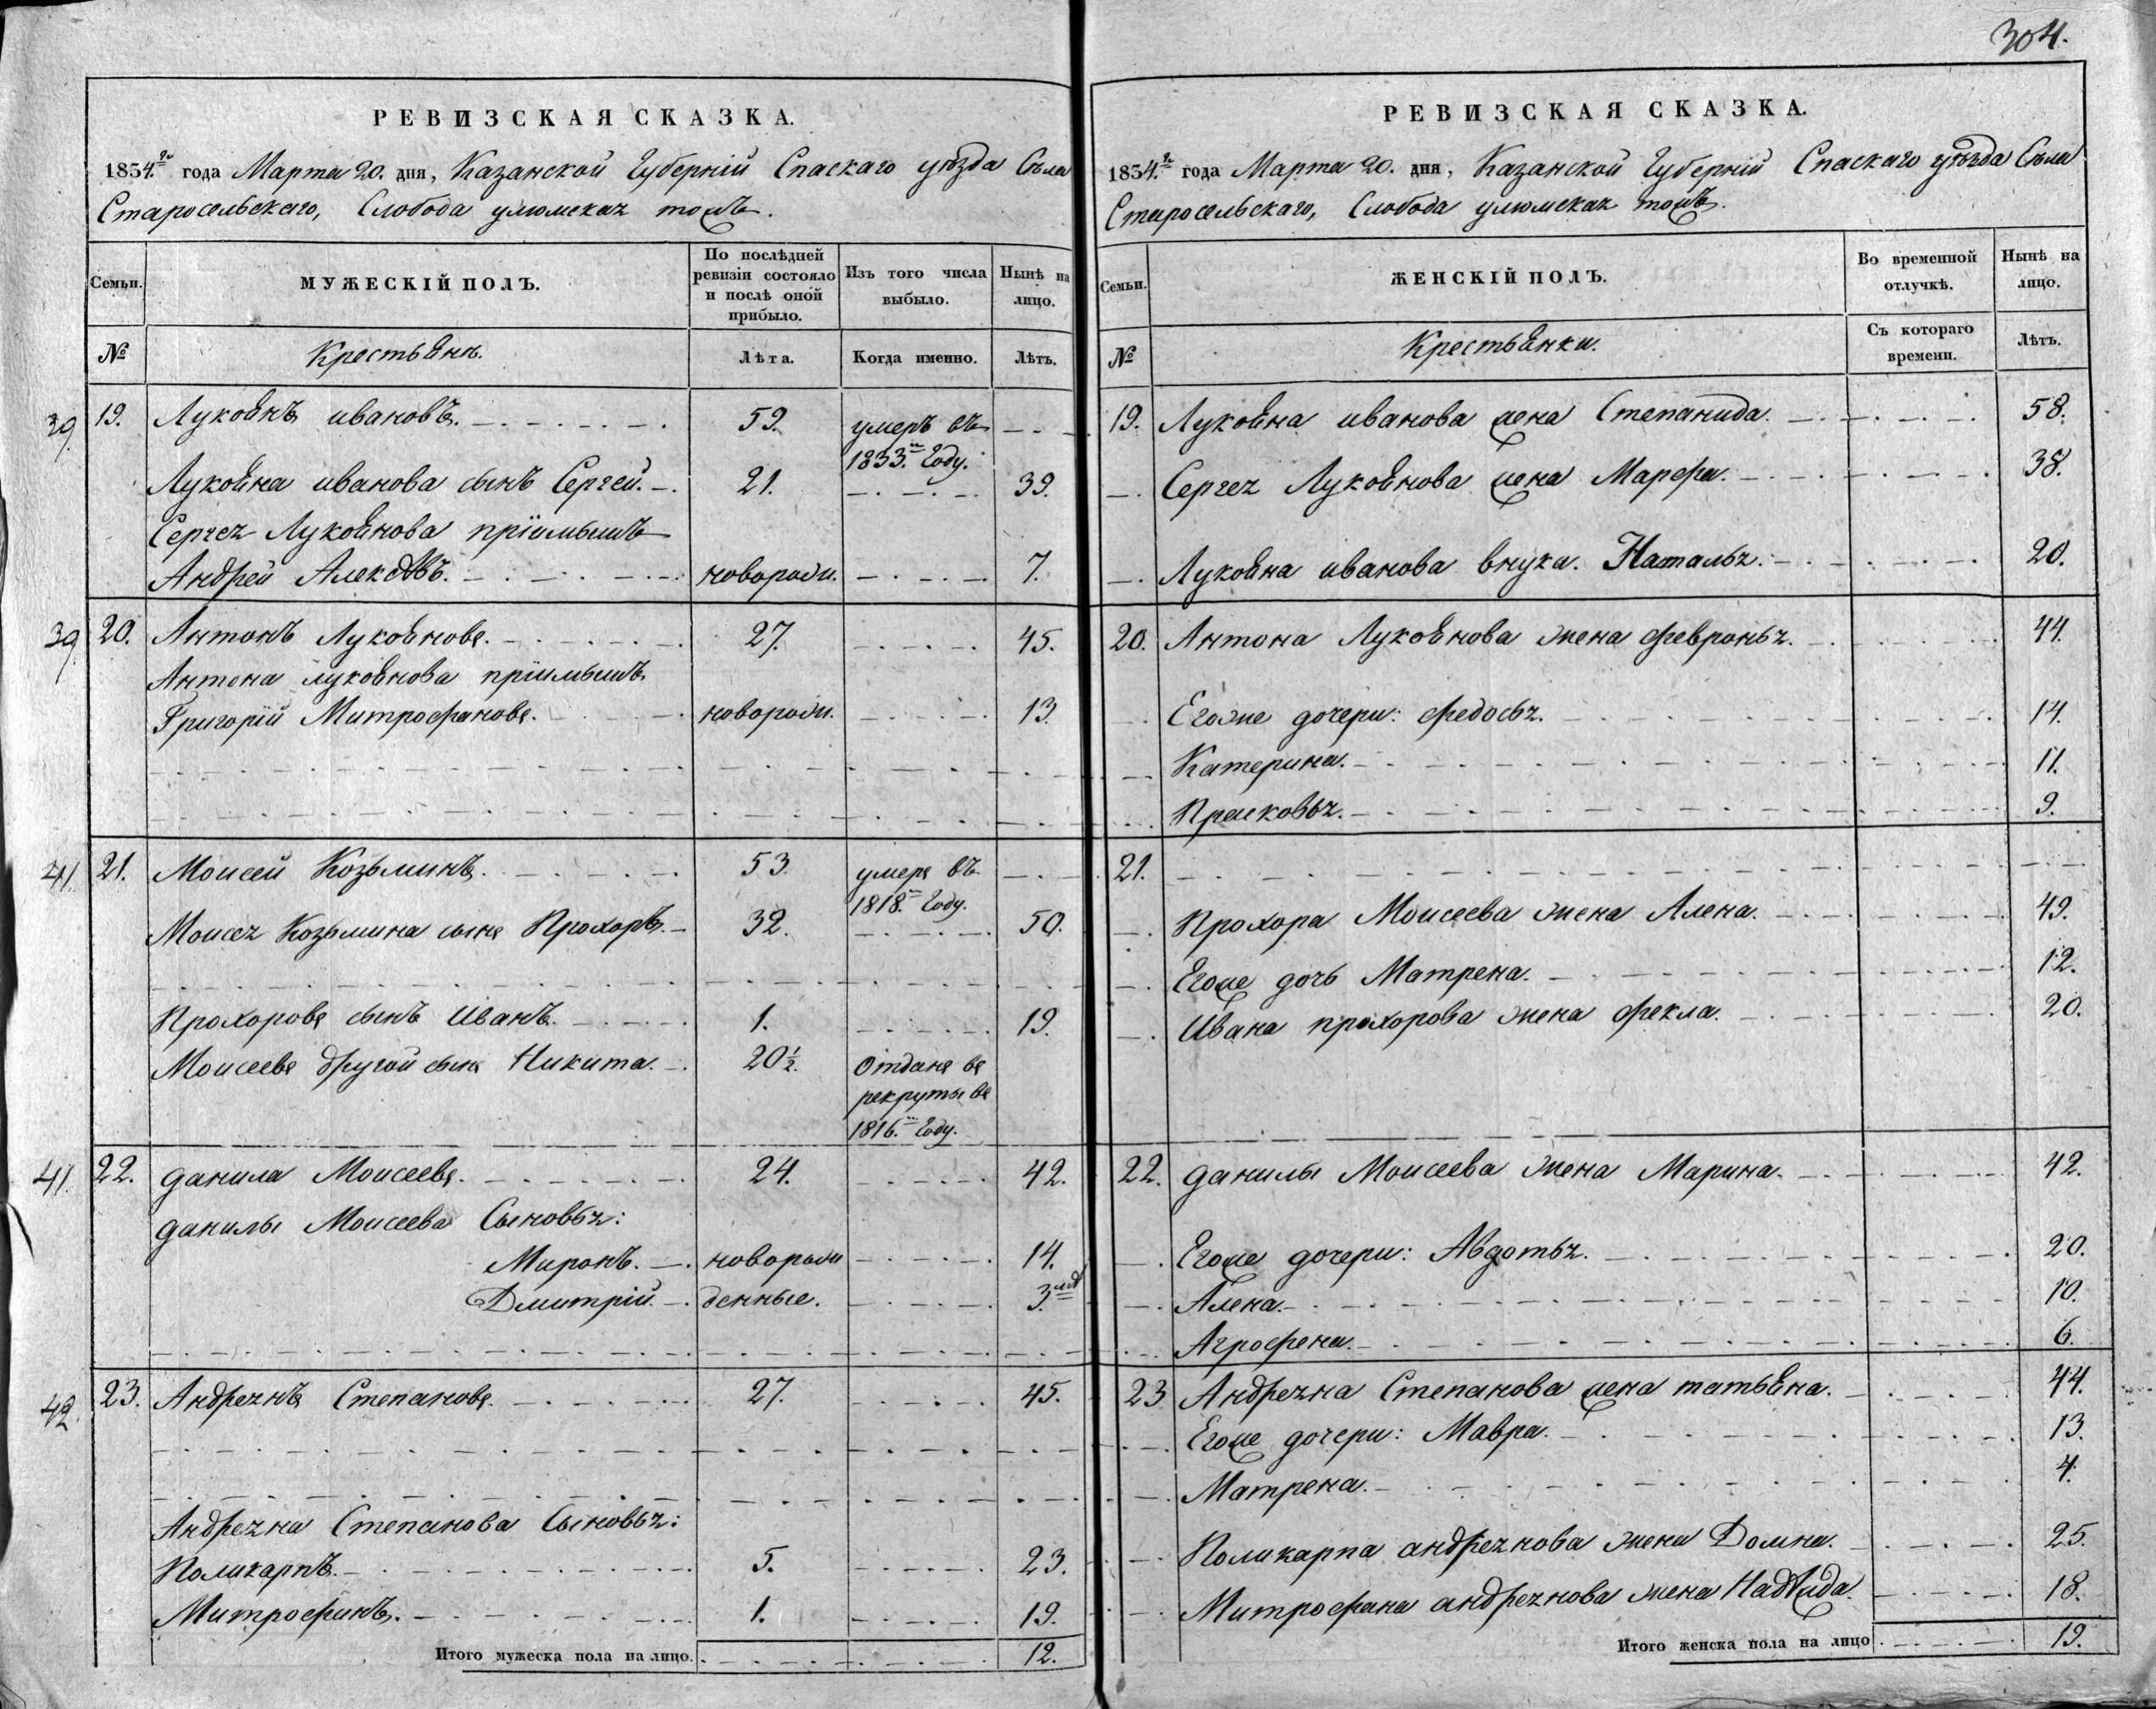 304.
РЕВИЗСКАЯ СКАЗКА.
1834.го года Марта 20. дня, Казанской Губернiй Спаскаго уѣзда Села
Старосельскаго,
Слобода
тожъ.
Семьи.
МУЖЕСКІЙ ПОЛЪ.
По послѣдней ревизіи состояло и послѣ оной прибыло.
Изъ того числа выбыло.
Нынѣ на лицо.
№
Крестьяне.
Лѣта.
Когда именно.
Лѣтъ.
39. 19. Лукоянъ ивановъ. 59. умеръ въ 1833.м Году.
Лукояна иванова сынъ Сергей. 21. 39.
Сергея Лукоянова прiимышъ
Андрей новорожд. 7.
39. 20. Антонъ Лукояновъ. 27. 45.
Антона лукоянова прiимышъ
Григорiй Митрофановъ. новорожд. 13.
41. 21. Моисей Козьминъ. 53. умеръ въ 1818.м Году.
Моисея Козьмина сынъ Прохоръ. 32. 50.
Прохоровъ сынъ Иванъ. 1. 19.
Моисеевъ другой сынъ Никита. 20½. Отданъ въ рекруты въ 1816.м Году.
41. 22. данила Моисеевъ. 24. 42.
данилы Моисеева Сыновья:
Миронъ. новорож 14.
Дмитрiй. денные. 3.
42. 23. Андреянъ Степановъ. 27. 45.
Андреяна Степанова Сыновья:
Поликарпъ. 5. 23.
Митрофанъ. 1. 19.
Итого мужеска пола на лицо. 12.
РЕВИЗСКАЯ СКАЗКА.
1834.го года Марта 20. дня, Казанской Губернiй Спаскаго уѣзда Села
Старосельскаго,
Слобода
тожъ.
Семьи.
ЖЕНСКІЙ ПОЛЪ.
Во временной отлучкѣ.
Нынѣ на лицо.
№
Крестьянки.
Съ котораго времени.
Лѣтъ.
19. Лукояна иванова жена Степанида. 58.
Сергея Лукоянова жена Марфа. 38.
Лукояна иванова внука. Наталья. 20.
20. Антона Лукоянова жена февронья. 44.
Егоже дочери: федосья. 14.
Катерина. 11.
Прасковья. 9.
21.
Прохора Моисеева жена Алена. 49.
Егоже дочь Матрена. 12.
Ивана прохорова жена фекла. 20.
22. данилы Моисеева жена Марина. 42.
Егоже дочери: Авдотья. 20.
Алена. 10.
Агрофена. 6.
23 Андреяна Степанова жена татьяна. 44.
Егоже дочери: Мавра. 13.
Матрена. 4.
Поликарпа андреянова жена Домна. 25.
Митрофана андреянова жена 18.
Итого женска пола на лицо 19.